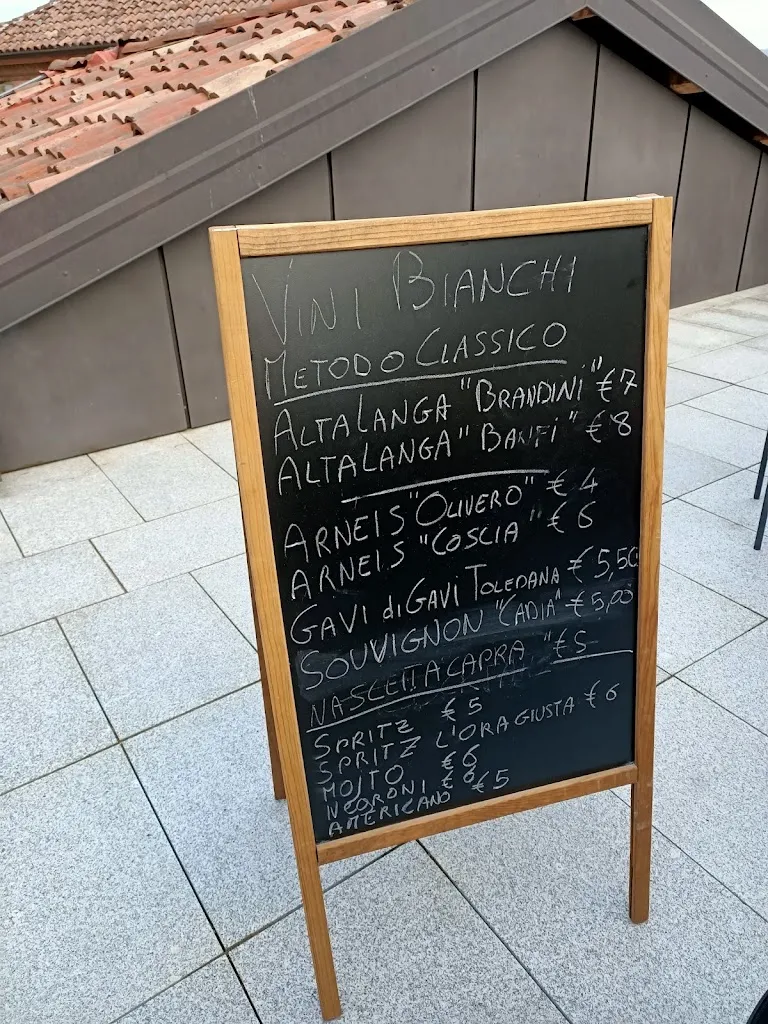 VINI BIANCHI
METODO CLASSICO
ALTALANGA "BRANDINI" €7
ALTALANGA "BANFI" €8
ARNEIS "OLIVERO" € 4
ARNEIS "COSCIA" € 6
GAVI di GAVI TOLEDANA € 5,50
SOUVIGNON "CADIA" € 5,00
NASCETTA CAPRA "€ 5
SPRITZ € 5
SPRITZ L'ORA GIUSTA € 6
MOJTO € 6
NEGRONI €
AMERICANO € 5